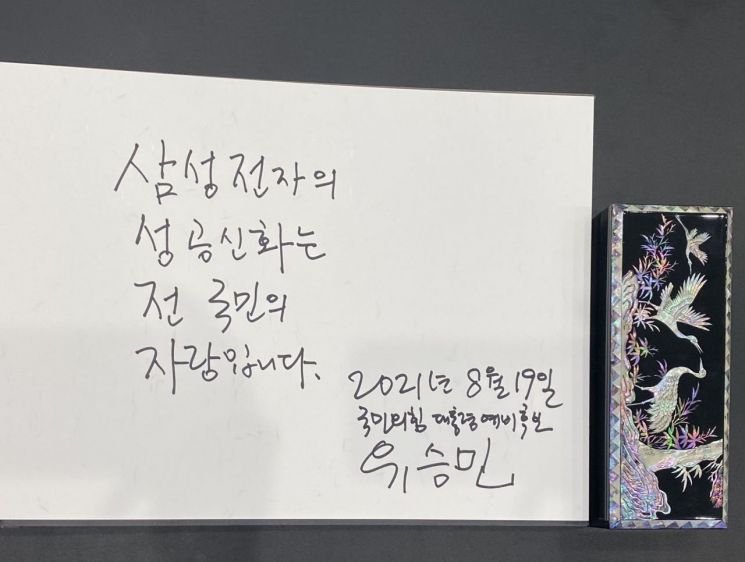 삼성전자의
성공신화는
전 국민의
자랑입니다.
2021년 8월 19일
국민의힘 대통령예비후보
유승민